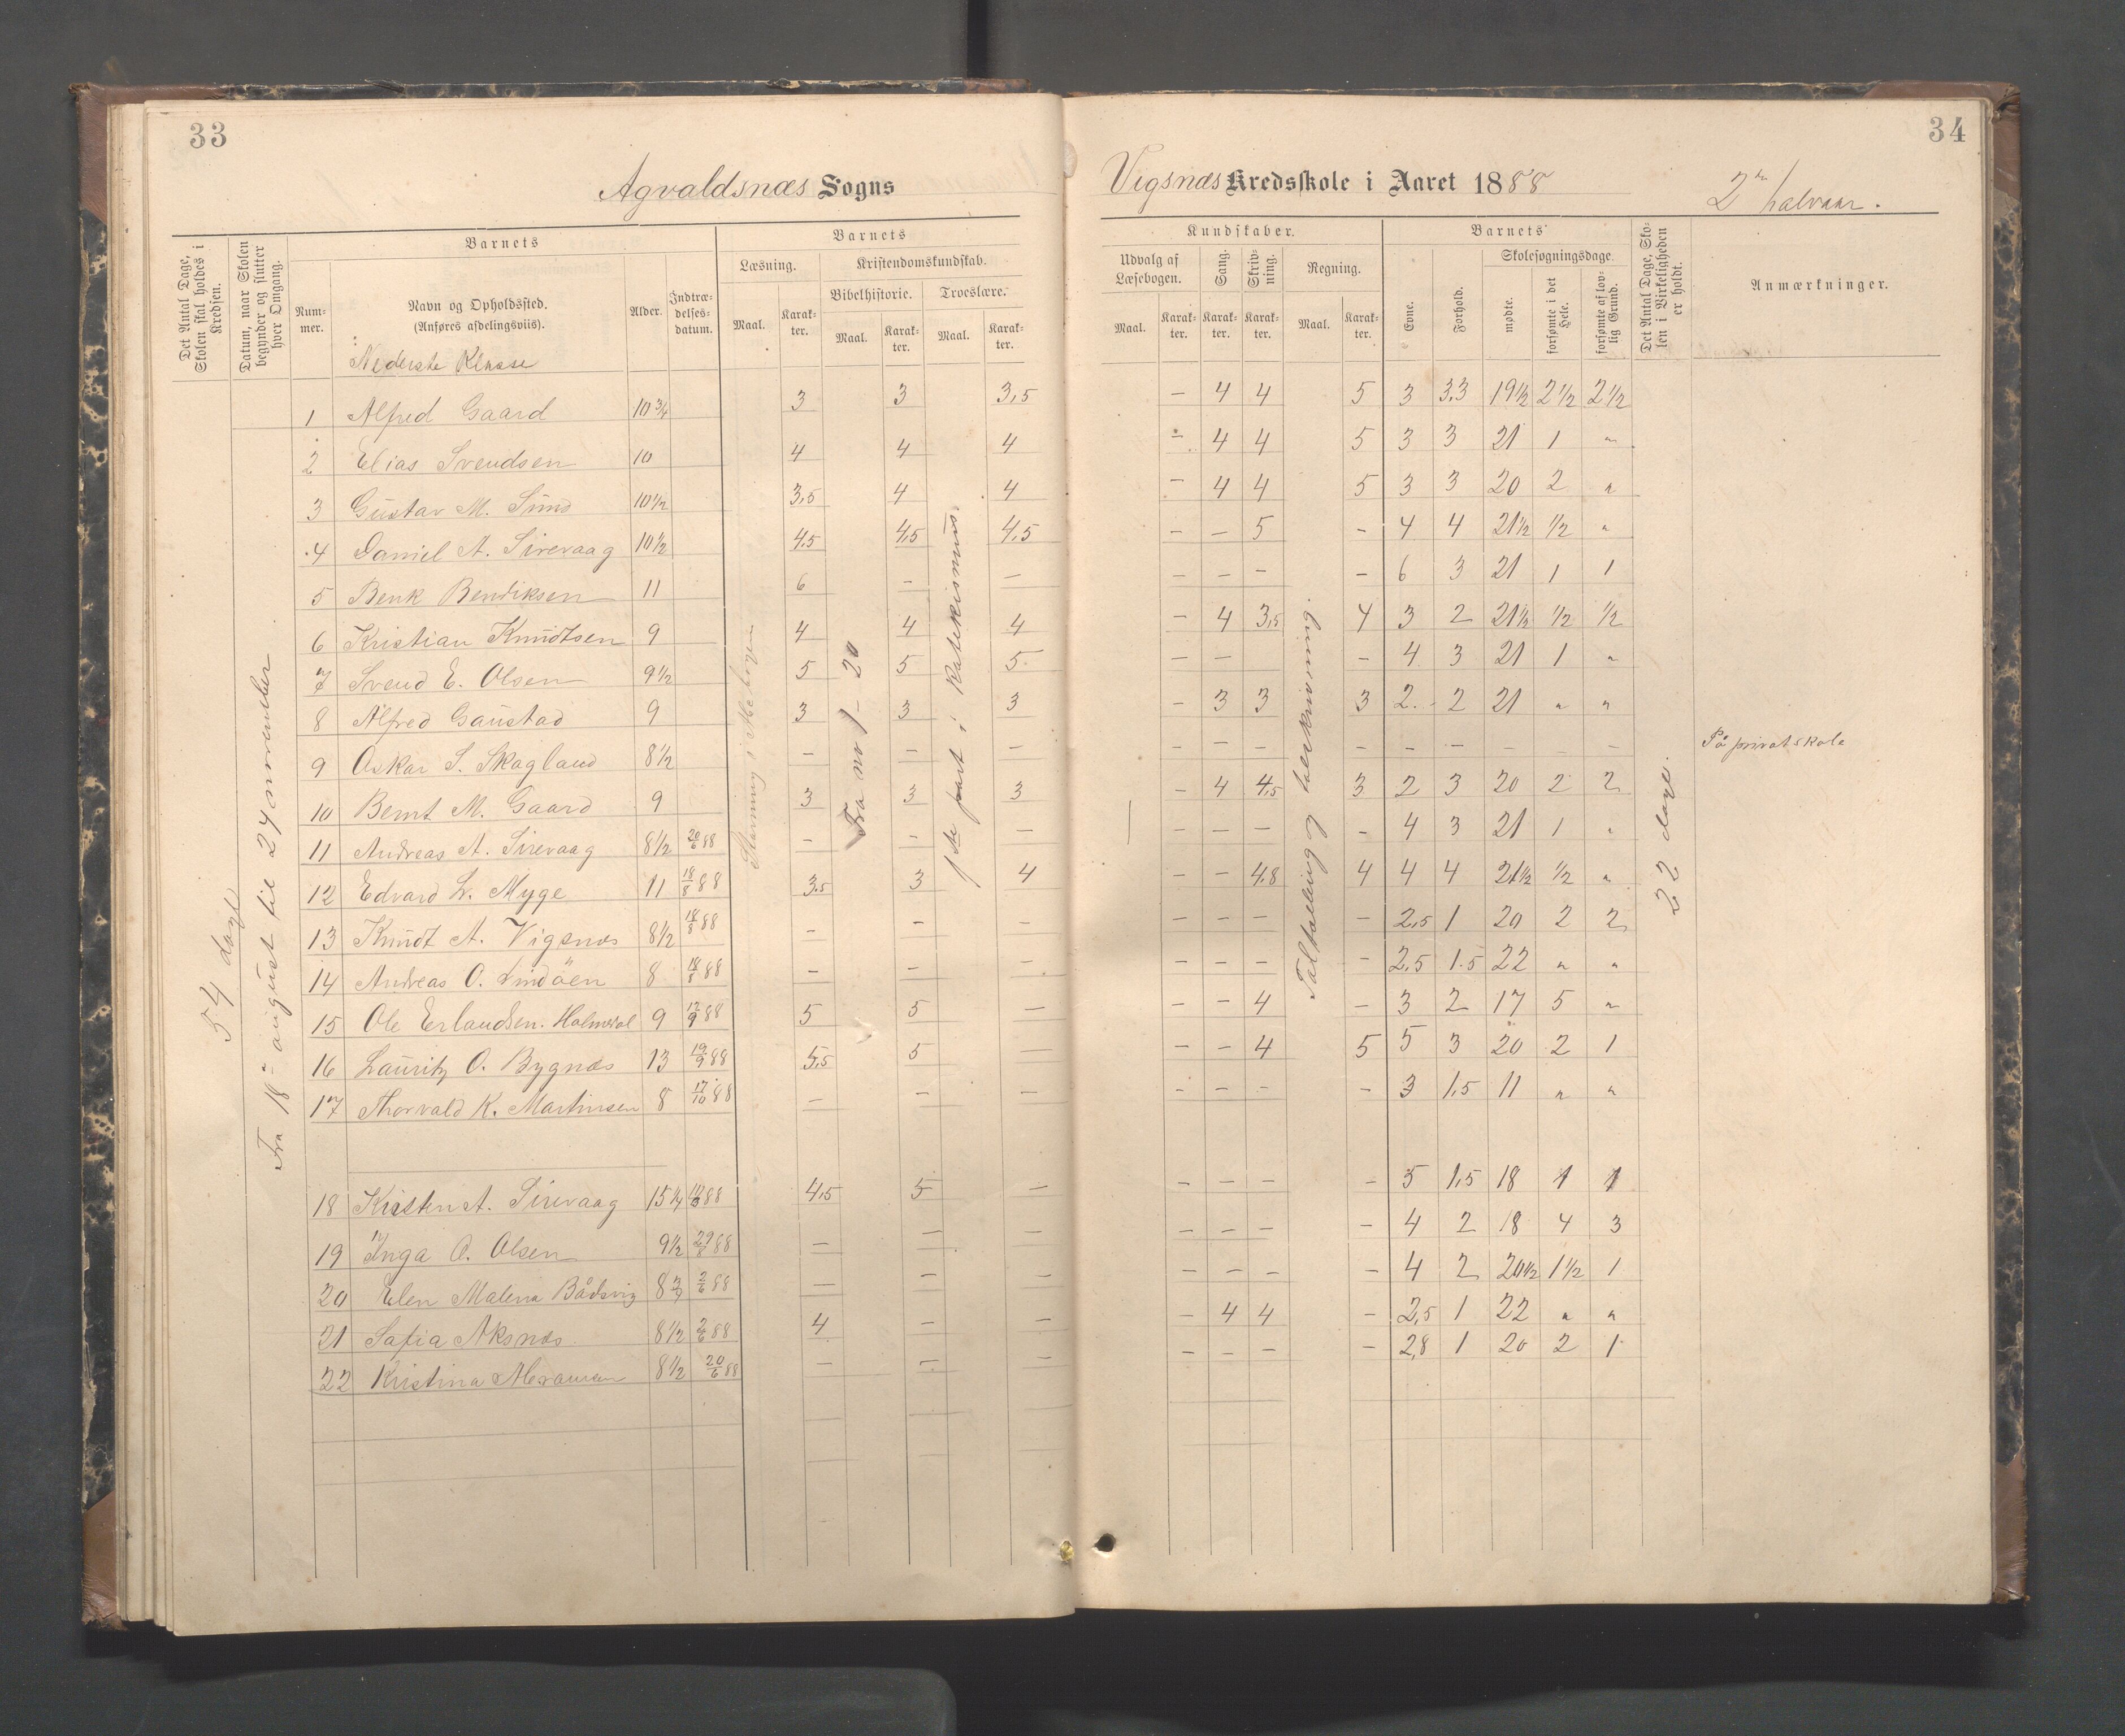 33
34
Agvaldsnæs Sogns
Vigsnæs Kredsskole i Aaret 1888
2det halvaar.
Det Antal Dage, Skolen skal holdes i Kredsen.
Datum, naar Skolen begynder og slutter hver Omgang.
Barnets
Nummer.
Navn og Opholdssted.
(Anføres afdelingsviis).
Alder.
Indtrædelsesdatum.
Barnets
Læsning.
Kristendomskundskab.
Bibelhistorie.
Troeslære.
Maal. Karakter. Maal. Karakter. Maal. Karakter.
Kundskaber.
Udvalg af Læsebogen.
Sang.
Skrivning.
Regning.
Maal. Karakter. Karakter. Karakter. Maal. Karakter.
Barnets
Evne.
Forhold.
Skolesøgningsdage.
mødte.
forsømte i det Hele.
forsømte af lovlig Grund.
Det Antal Dage, Skolen i Virkeligheden er holdt.
Anmærkninger.
Nederste Klasse
54 dage
Fra 18de august til 24 november
Stavning i Abc bogen
Fra no 1 - 20
1ste part i Katekismus.
Taltælling og talskrivning.
22 dage.
1 Alfred Gaard 10 3/4 3 3 3,5 - 4 4 5 3 3,3 19 1/2 2 1/2 2 1/2
2 Elias Svendsen 10 4 4 4 - 4 4 5 3 3 21 1 "
3 Gustav M. Sund 10 1/2 3,5 4 4 - 4 4 5 3 3 20 2 "
4 Daniel A. Sirevaag 10 1/2 4,5 4,5 4,5 - - 5 - 4 4 21 1/2 1/2 "
5 Benk Bendiksen 11 6 - - - - - - 6 3 21 1 1
6 Kristian Knudtsen 9 4 4 4 - 4 3,5 4 3 2 21 1/2 1/2 1/2
7 Svend E. Olsen 9 1/2 5 5 5 - - - 4 3 21 1 "
8 Alfred Gaustad 9 3 3 3 - 3 3 3 2 2 21 " "
9 Oskar S. Skagland 8 1/2 - - - - - - - - - - - - På privatskole
10 Bernt M. Gaard 9 3 3 3 - 4 4,5 3 2 3 20 2 2
11 Andreas A. Sirevaag 8 1/2 20/6 88 - - - - - - - 4 3 21 1 "
12 Edvard L. Myge 11 18/8 88 3,5 3 4 - - 4,8 4 4 4 21 1/2 1/2 "
13 Knudt A. Vigsnæs 8 1/2 18/8 88 - - - - - - - 2,5 1 20 2 2
14 Andreas O. Lindöen 8 18/8 88 - - - - - - - 2,5 1.5 22 " "
15 Ole Erlandsen. Holmedal 9 12/9 88 5 5 - - - 4 - 3 2 17 5 "
16 Lauritz O. Bygnæs 13 19/9 88 5,5 5 - - - 4 5 5 3 20 2 1
17 Thorvald K. Martinsen 8 17/10 88 - - - - - - - 3 1,5 11 " "
18 Kristen A. Sirevaag 15 1/4 88 4,5 5 - - - - - 5 1,5 18 1 1
19 Inga O. Olsen 9 1/2 29/8 88 - - - - - - 4 2 18 4 3
20 Elen Malena Bådsvig 8 3/4 2/6 88 - - - - - - - 4 2 20 1/2 1 1/2 1
21 Safia Aksnæs 8 1/2 2/6 88 4 - - - 4 4 - 2,5 1 22 " "
22 Kristina 8 1/2 20/6 88 - - - - - - - 2,8 1 20 2 1